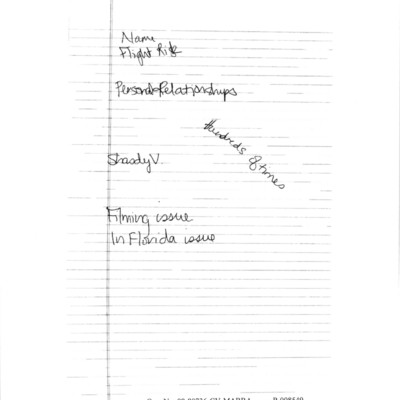 Name
Flight Risk
Personal Relationships
Hundreds of times
Shaady V.
Filming issue
In Florida issue